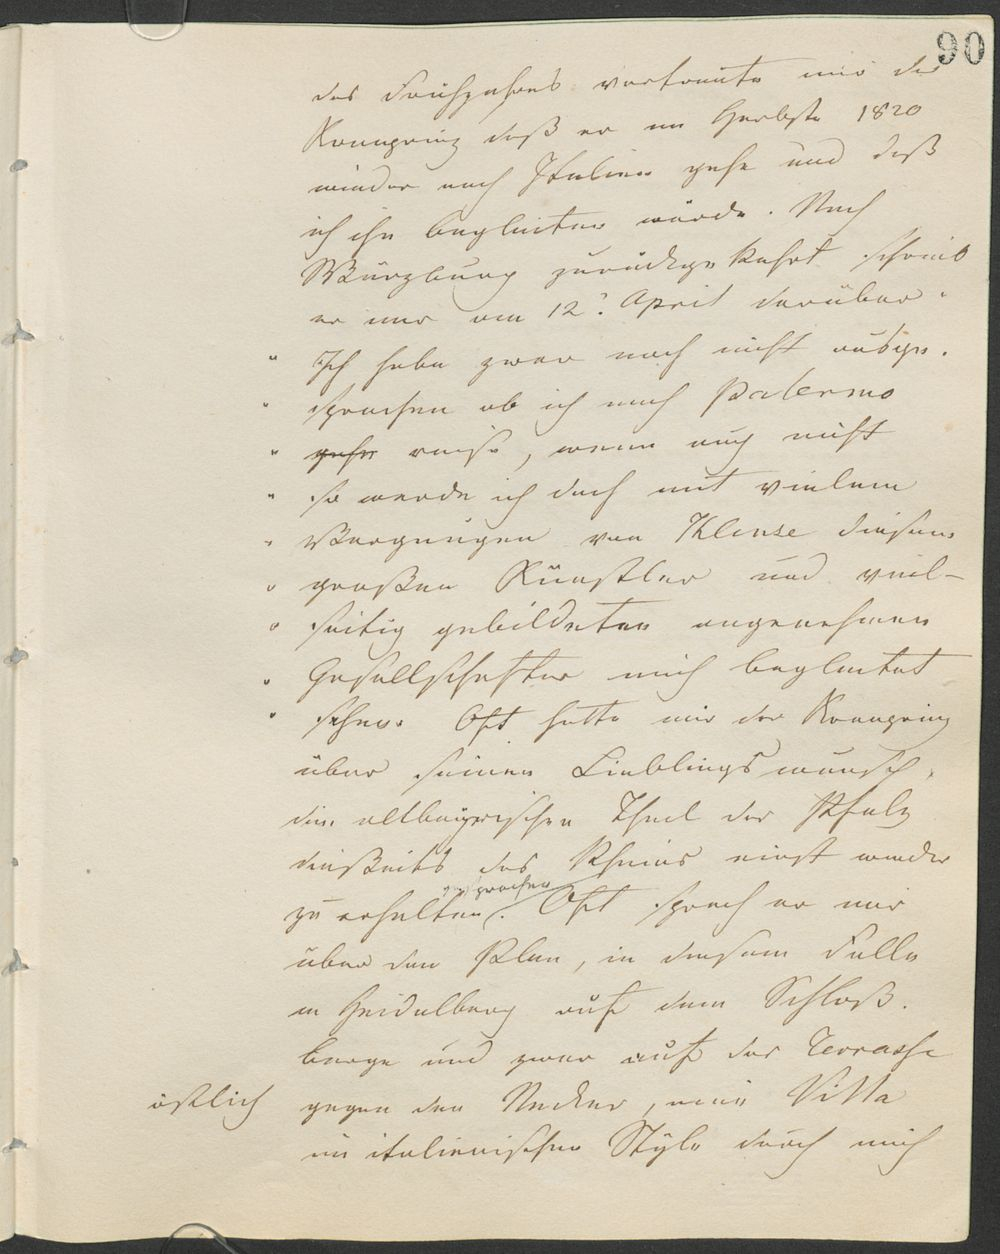 90
des Frühjahres vertraute mir der
Kronprinz daß er im Herbste 1820
wieder nach Italien gehe und daß
ich ihn begleiten würde. Nach
Würzburg zurückgekehrt schrieb
er mir am 12ᵗ April darüber.
" Ich habe zwar noch nicht ausge-
" sprochen ob ich nach Palermo
" gehe reise, wenn auch nicht
" so werde ich doch mit vielem
" Vergnügen von Klenze diesem
" großen Künstler und viel-
" seitig gebildeten angenehmen
" Gesellschafter mich begleitet
" sehen. Oft hatte mir der Kronprinz
über seinen Lieblingswunsch,
den altbayerischen Theil der Pfalz
dießeits des Rheins einst wieder
gesprochen
zu erhalten. Oft sprach er mir
über den Plan, in diesem Falle
in Heidelberg auf dem Schloß-
berge und zwar auf der Terrasse
östlich gegen den Neckar, eine Villa
im italienischen Style durch mich